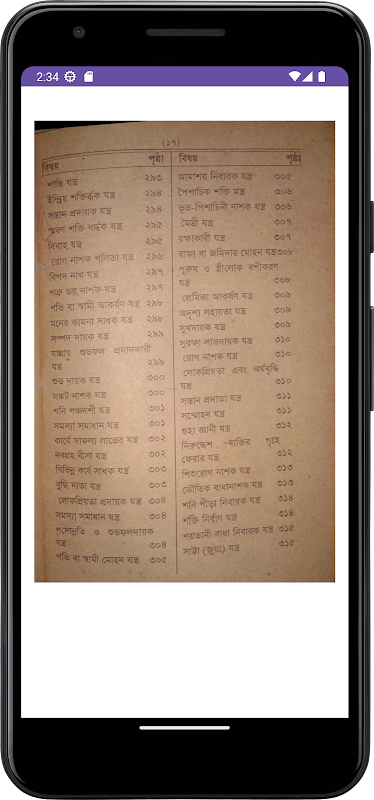 2:34
(১৭)
বিষয় পৃষ্ঠা
শান্তি যন্ত্র ২৯৩
ইন্দ্রিয় শক্তিবর্দ্ধক যন্ত্র ২৯৪
সন্তান প্রদায়ক যন্ত্র ২৯৪
স্মরণ শক্তি বর্দ্ধক যন্ত্র ২৯৫
বিবাহ যন্ত্র ২৯৫
রোগ নাশক পুলিতা যন্ত্র ২৯৬
বিপদ নাশ যন্ত্র ২৯৭
শত্রু ভয় নাশক যন্ত্র ২৯৭
পতি বা স্বামী আকর্ষণ যন্ত্র ২৯৮
মনের কামনা সাধক যন্ত্র ২৯৮
সম্পদ দায়ক যন্ত্র ২৯৯
যান্মায় শুভফল প্রদানকারী
যন্ত্র ২৯৯
শুভ দায়ক যন্ত্র ৩০০
সঙ্কট নাশক যন্ত্র ৩০০
শনি পঞ্চদশী যন্ত্র ৩০১
সমস্যা সমাধান যন্ত্র ৩০১
কার্যে সাফল্য লাভের যন্ত্র ৩০২
নবগ্রহ বীসা যন্ত্র ৩০২
বিভিন্ন কার্য সাধক যন্ত্র ৩০৩
বুদ্ধি দাতা যন্ত্র ৩০৩
লোকপ্রিয়তা প্রদায়ক যন্ত্র ৩০৪
সমস্যা সমাধান যন্ত্র ৩০৪
পদোন্নতি ও শুভফলদায়ক
যন্ত্র ৩০৪
পতি বা স্বামী মোহন যন্ত্র ৩০৫
বিষয় পৃষ্ঠা
আমাশয় নিবারক যন্ত্র ৩০৫
পৈশাচিক শক্তি মন্ত্র ৩০৬
ভূত-পিশাচিনী নাশক যন্ত্র ৩০৬
মৈত্রী যন্ত্র ৩০৭
রক্ষাকারী যন্ত্র ৩০৭
রাজা বা জমিদার মোহন যন্ত্র ৩০৮
পুরুষ ও স্ত্রীলোক বশীকরণ
যন্ত্র ৩০৮
প্রেমিকা আকর্ষণ যন্ত্র ৩০৯
অদৃশ্য সহায়তা যন্ত্র ৩০৯
সুখদায়ক যন্ত্র ৩০৯
সুরক্ষা লাভদায়ক যন্ত্র ৩১০
রোগ নাশক যন্ত্র ৩১০
লোকপ্রিয়তা এবং অর্থবৃদ্ধি
যন্ত্র ৩১০
সন্তান প্রদাতা যন্ত্র ৩১১
সম্মোহন যন্ত্র ৩১১
গুহ্য জ্ঞানী যন্ত্র ৩১২
নিরুদ্দেশ ব্যক্তির গৃহে
ফেরার যন্ত্র ৩১২
শিশুরোগ নাশক যন্ত্র ৩১৩
ভৌতিক বাধানাশক যন্ত্র ৩১৩
শনি পীড়া নিবারক যন্ত্র ৩১৪
শক্তি নির্বাণ যন্ত্র ৩১৪
শয়তানী বাধা নিবারক যন্ত্র ৩১৫
সাট্টা (জুয়া) যন্ত্র ৩১৫